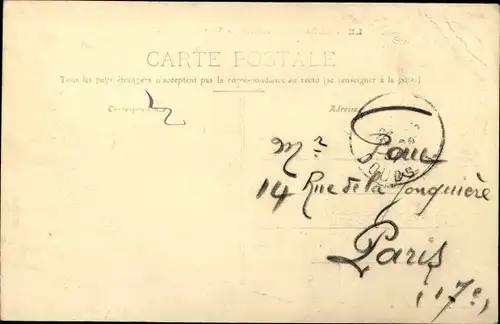 CARTE POSTALE
Tous les pays étrangers n'acceptent pas la correspondance au recto (se renseigner à la poste)
Correspondance
Adresse
Mr
14 Rue de la Jonquière
Paris
(17e)